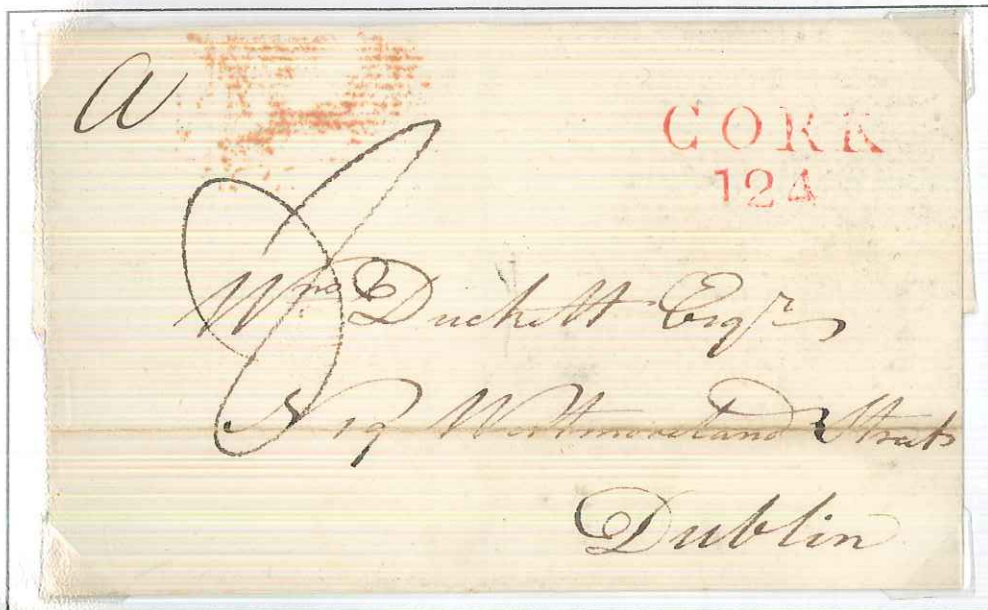 a
CORK
124
8
Wm Duckett Esqr
No 19 Westmoreland Street
Dublin